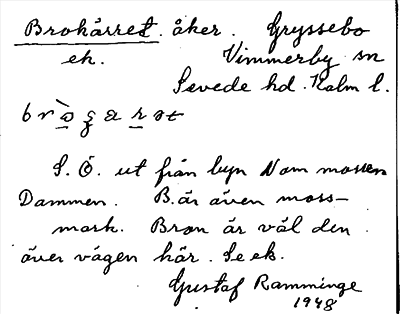 Brokärret. åker. Gryssebo
ek. Vimmerby sn
Sevede hd. Kalm l.
S. Ö. ut från byn N om mossen
Dammen. B. är även moss-
mark. Bron är väl den
över vägen här. Se ek.
Gustaf Ramminge
1948